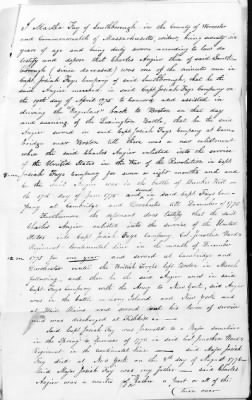 I Martha Fay of Southborough in the County of Worcester
and Commonwealth of Massachusetts widow, being seventy six
years of age and being duly sworn according to law do
testify and depose that Charles Angier then of said South-
borough (since deceased) was one of the minute men in
Capt Josiah Fays Company of said Southborough, that he the
said Angier marched in said Capt Josiah Fays Company on
the 19th day of April 1775 to Concord and assisted in
driving the Regulars back to Boston on that day
and evening of the Lexington Battle, that he the said
Angier served in said Capt Josiah Fays Company at Cam-
bridge near Boston till there was a new enlistment
when the said Charles Angier enlisted into the service
of the United States in the War of the Revolution in Capt
Josiah Fays Company for eight months and
the said Angier was in the battle of Bunker Hill on
the 17th day of June 1775 and served in said Capt Fays Com-
pany at Cambridge and Dorchester till December of 1775
Furthermore the deponent does testify that the said
Charles Angier enlisted into the service of the United
States into Capt Josiah Fays Company Col Jonathan Ward's
Regiment Continental line in the month of December
1775 for one year and served at Cambridge and
Dorchester until the British Troops left Boston in March
following, and then he the said Angier went in said
Capt Fays Company with the Army to New York, said Angier
was in the battle on Long Island and New York and
at White Plains and served out his term of service
and was discharged at
said Capt Josiah Fay was promoted to a Major sometime
in the Spring of 1776 in said Col Jonathan Ward's
Regiment in the Continental line said Major Josiah
Fay died at New York on the 8th day of August 1776
Said Major Josiah Fay was my father said Charles
Angier was a a part or all of the
(turn over